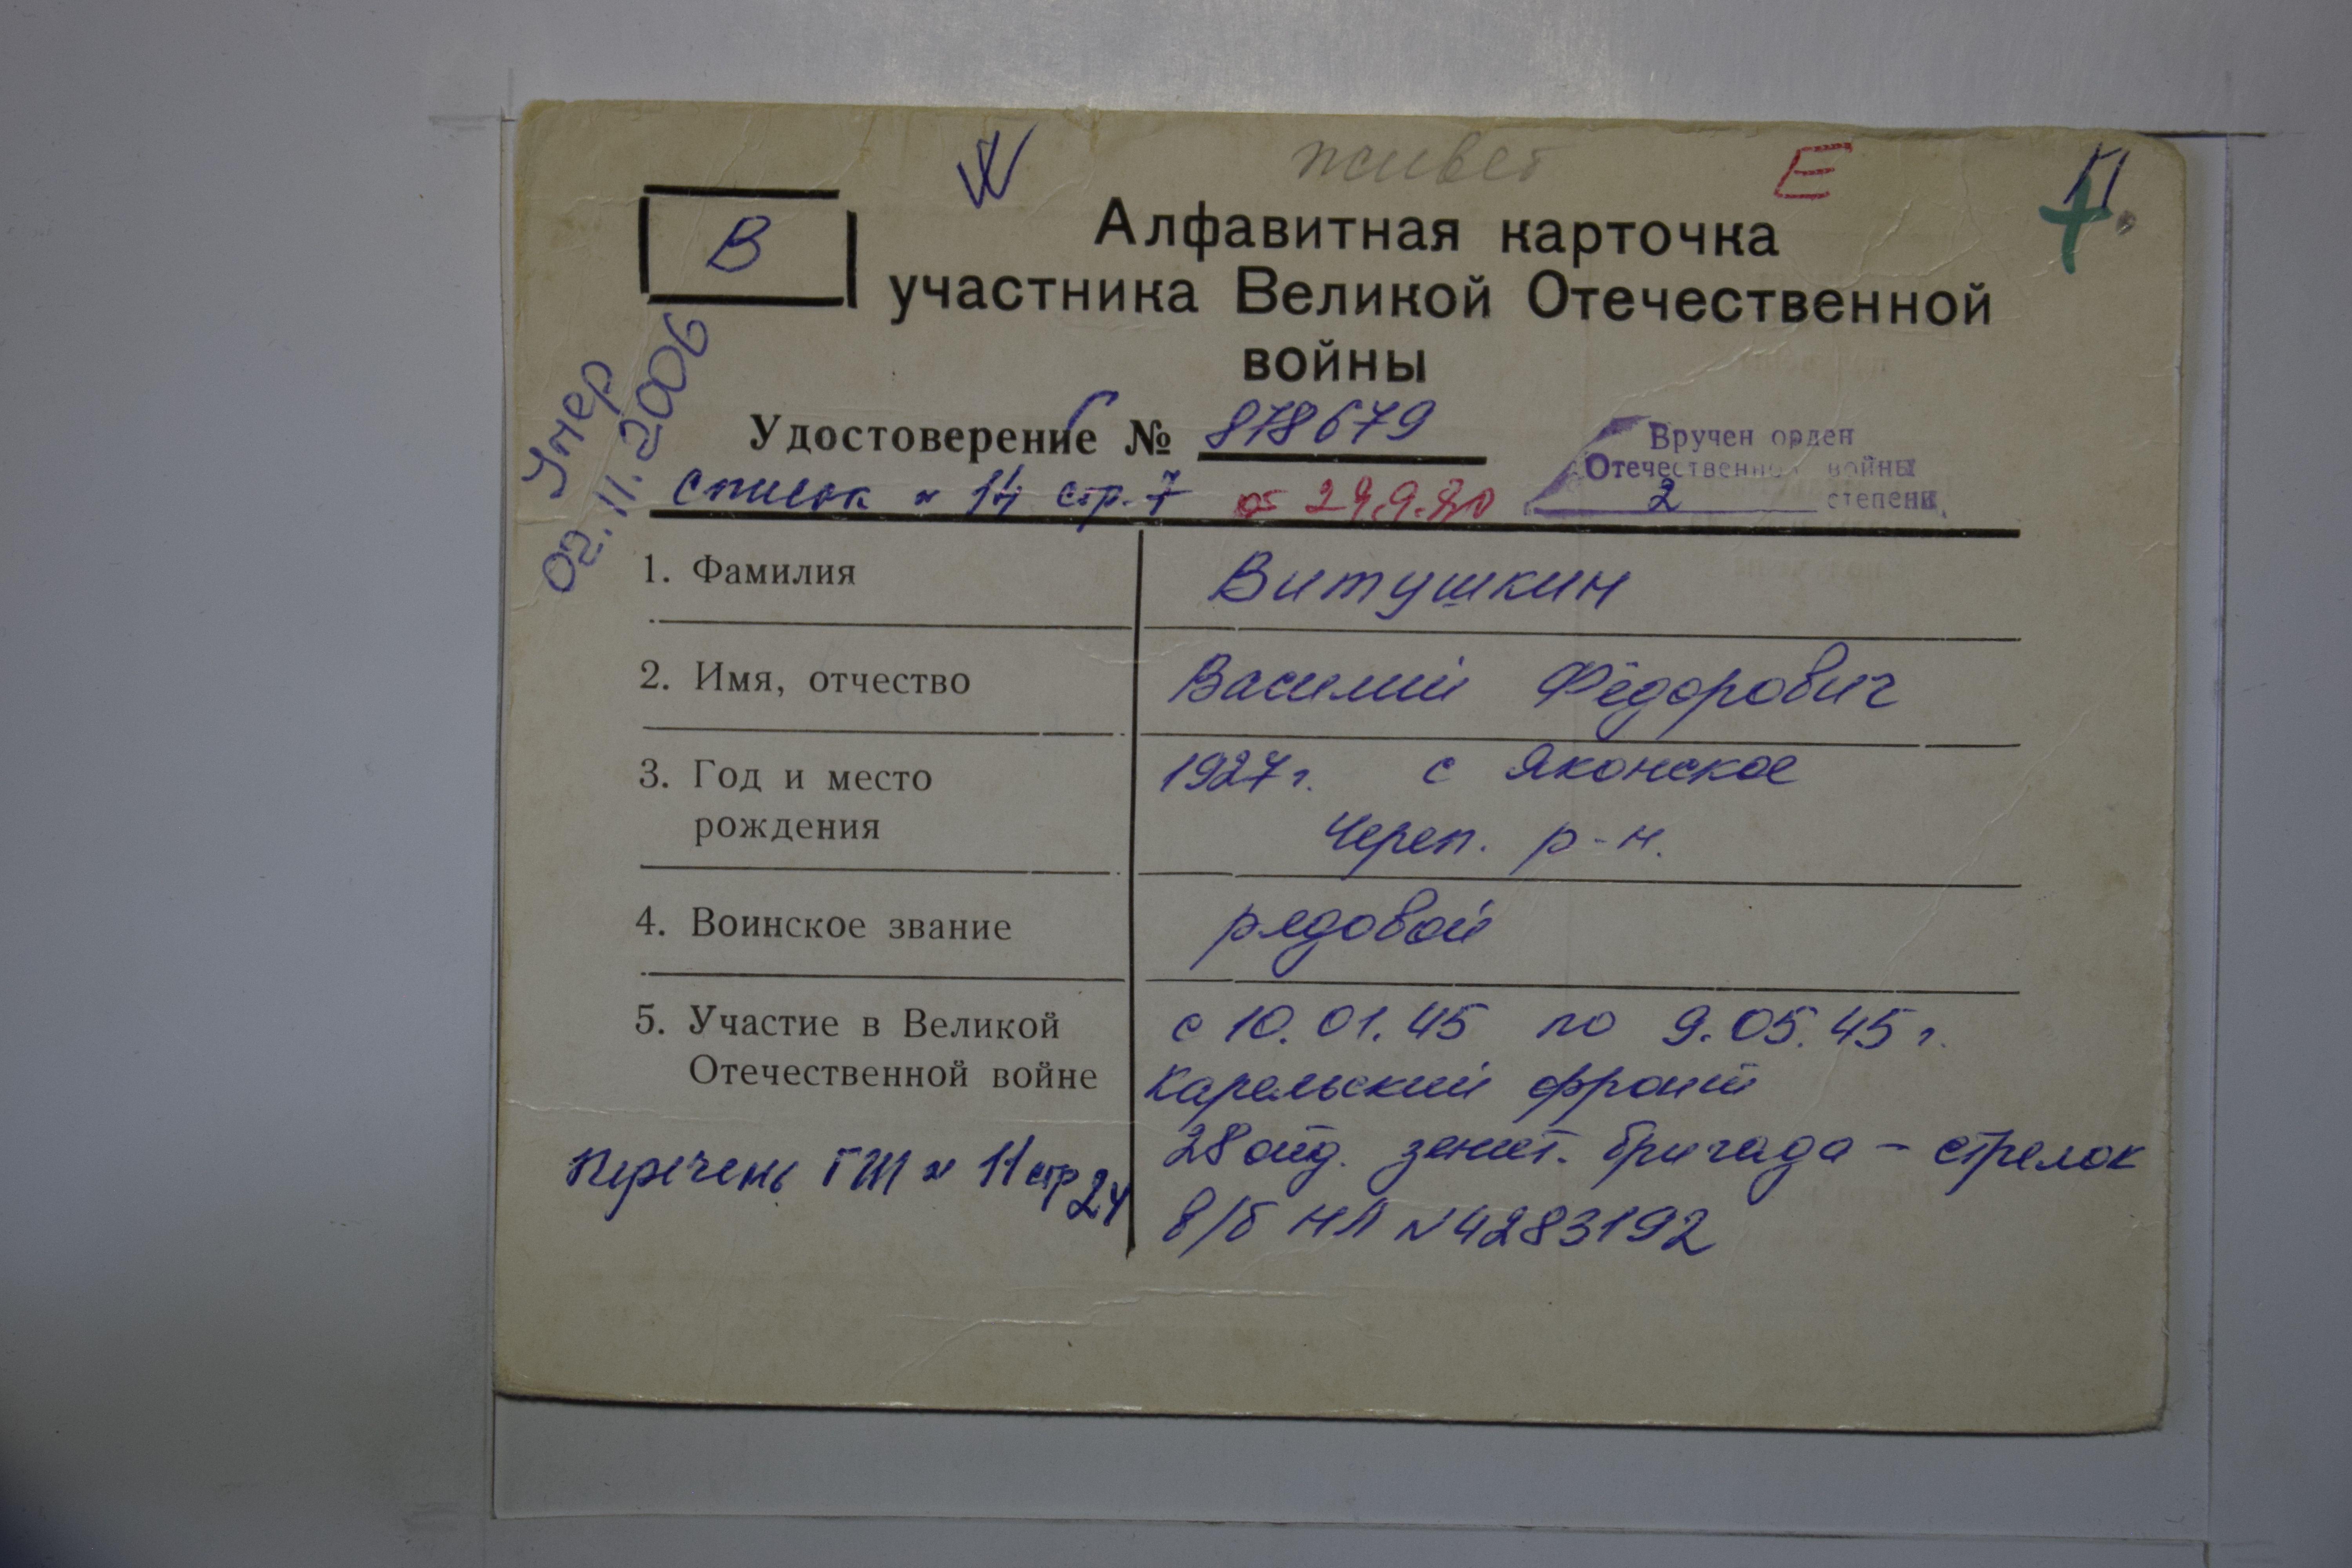 живет Е П.
В
Алфавитная карточка
участника Великой Отечественной
войны
Умер
02.11.2006
Удостоверение № Г 878679
Вручен орден
Отечественной войны
2 степени
список № 14 стр. 7 от 29.9.80
1. Фамилия Витушкин
2. Имя, отчество Василий Фёдорович
3. Год и место 1927 г. с Яконское
рождения Череп. р-н.
4. Воинское звание рядовой
5. Участие в Великой с 10.01.45 по 9.05.45 г.
Отечественной войне Карельский фронт
28 отд. зенит. бригада - стрелок
Перечень ГШ № 11 стр 24
в/б НЛ № 4283192